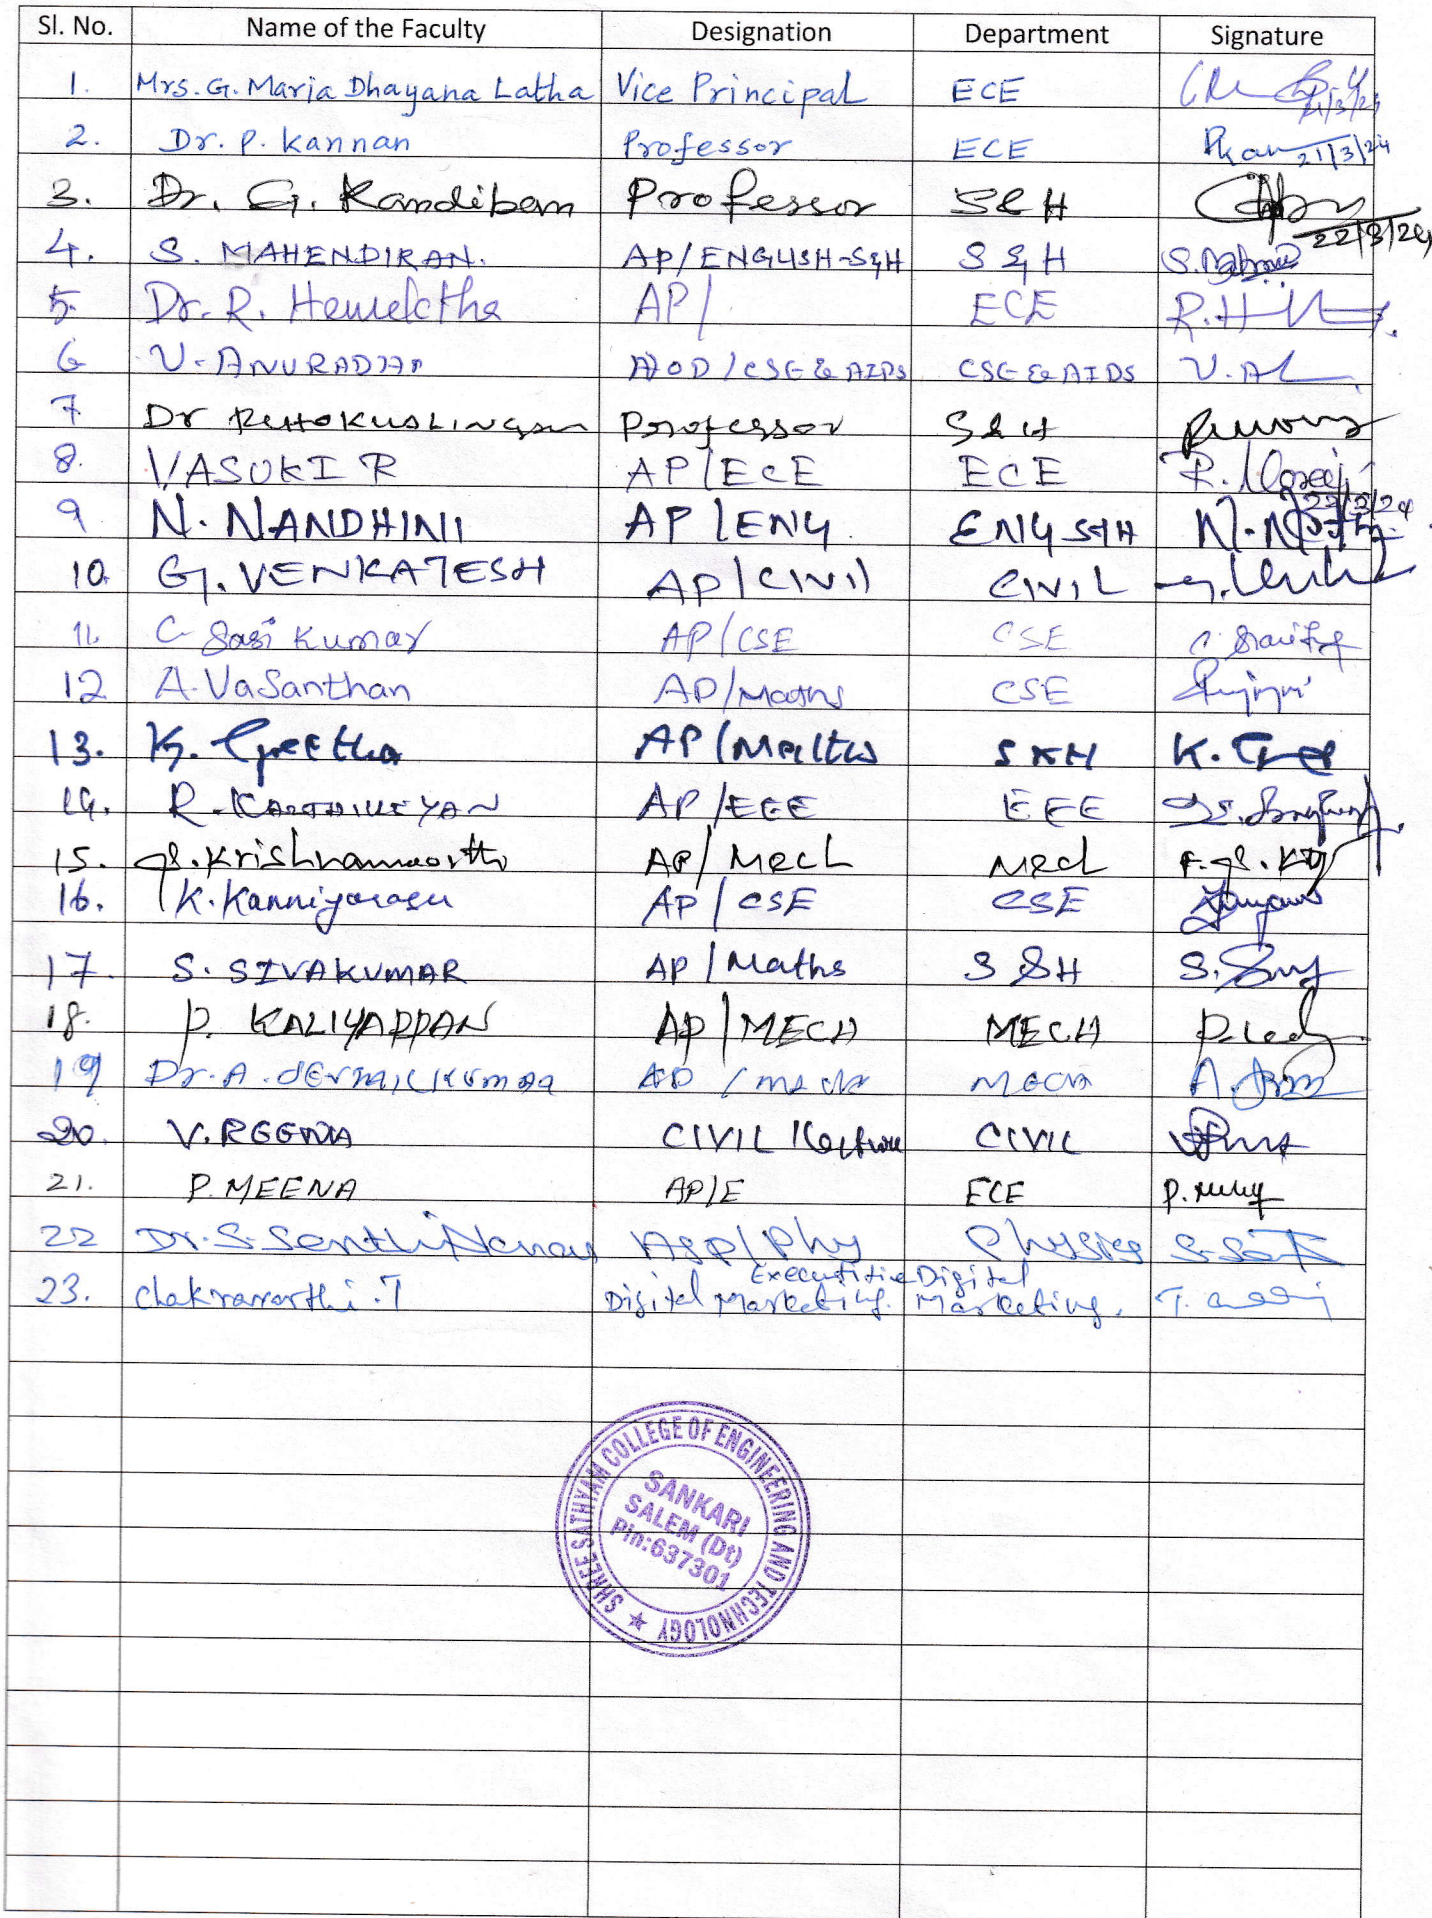 Sl. No. Name of the Faculty Designation Department Signature
1. Mrs. G. Maria Dhayana Latha Vice Principal ECE 21/3/24
2. Dr. P. Kannan Professor ECE Pkan 21/3/24
3. Dr. G. Kandiban Professor S&H 22/3/24
4. S. MAHENDIRAN. AP/ENGLISH-S&H S&H
5. Dr. R. Hemalatha AP/ ECE
6 V. ANURADHA HOD/CSE & AIDS CSE & AIDS
7 Dr Professor S&H
8. VASUKI R AP/ECE ECE
9 N. NANDHINI AP/ENG ENG S&H 22/3/24
10. G. VENKATESH AP/CIVIL CIVIL
11. C. Sasi Kumar AP/CSE CSE
12 A. Vasanthan AP/Maths CSE
13. K. Geetha AP/Maths S&H
14. R. KARTHIKEYAN AP/EEE EEE
15. Krishnamoorthi AP/Mech Mech
16. K. Kanniyarasu AP/CSE CSE
17. S. SIVAKUMAR AP/Maths S&H
18. P. KALIYAPPAN AP/MECH MECH
19 Dr. A. SENTHILKUMAR AP/mech mech
20. V. REENA CIVIL CIVIL
21. P. MEENA AP/E ECE
22 Dr. S. ASP/Phy Physics
23. Chakravarthi. T Executitive Digital Marketing. Digital Marketing.
SHREE SATHYAM COLLEGE OF ENGINEERING AND TECHNOLOGY
SANKARI
SALEM (Dt)
Pin:637301